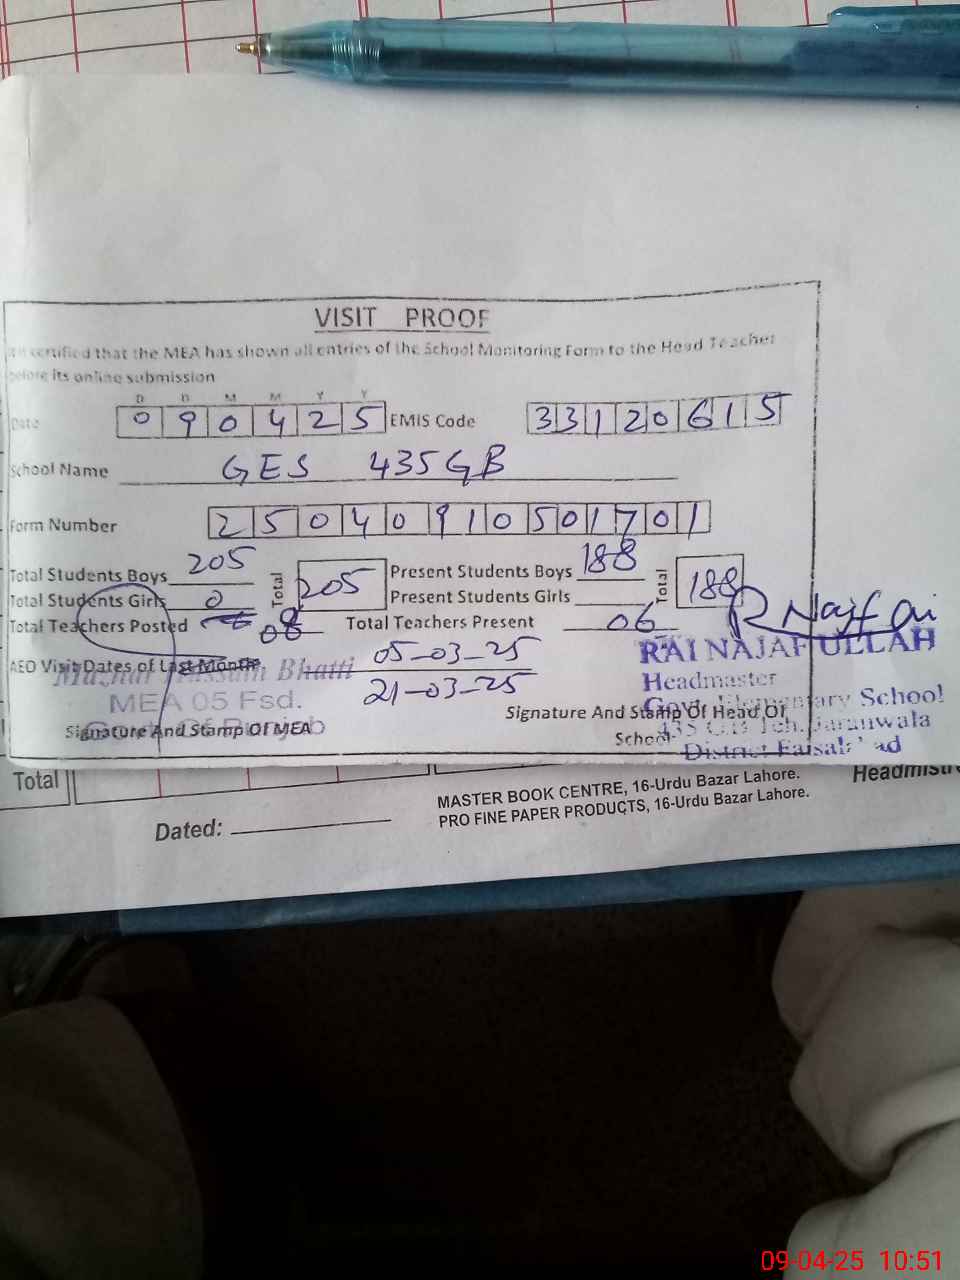 VISIT PROOF
It is certified that the MEA has shown all entries of the School Monitoring Form to the Head Teacher
before its online submission
D D M M Y Y
Date 0 9 0 4 2 5 EMIS Code 3 3 1 2 0 6 1 5
School Name GES 435 GB
Form Number 2 5 0 4 0 9 1 0 5 0 1 7 0 1
Total Students Boys 205 Total 205 Present Students Boys 188 Total 188
Total Students Girls 0 Present Students Girls
Total Teachers Posted 08 Total Teachers Present 06
R Najf
AEO Visit Dates of Last Month 05-03-25
21-03-25
Mazhar Hussain Bhatti
MEA 05 Fsd.
Govt. Of Punjab
Signature And Stamp Of MEA
RAI NAJAF ULLAH
Headmaster
Govt. Elementary School
435 G.B Teh. Jaranwala
District Faisalabad
Signature And Stamp Of Head Of
School
Total
Dated:
MASTER BOOK CENTRE, 16-Urdu Bazar Lahore.
PRO FINE PAPER PRODUCTS, 16-Urdu Bazar Lahore.
09-04-25 10:51